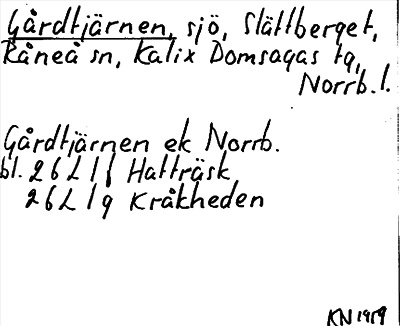 Gårdtjärnen, sjö, Slättberget,
Råneå sn, Kalix Domsagas tg,
Norrb. l.
Gårdtjärnen ek Norrb.
bl. 26L 1f Hatträsk
26L 1g Kråkheden
KN 1959